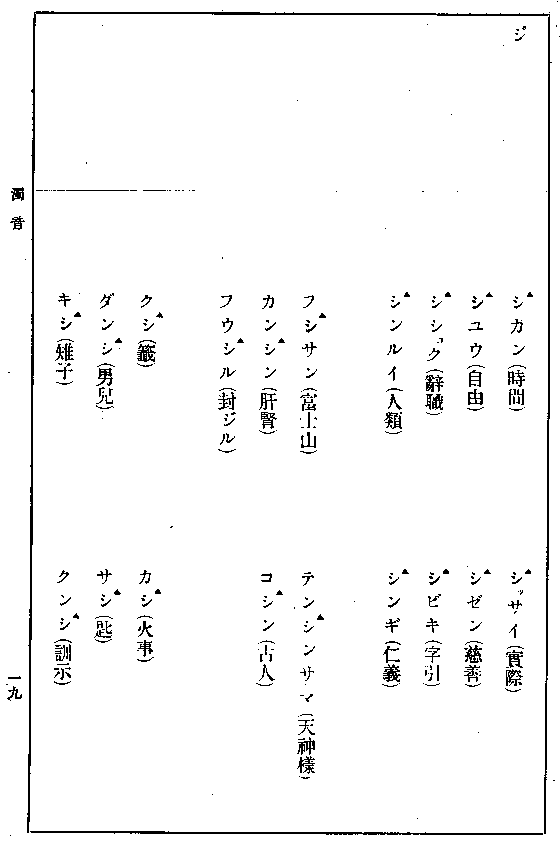 ジ
シ▲カン(時間)
シ▲ユウ(自由)
シ▲ショク(辭職)
シ▲ンルイ(人類)
フシ▲サン(富士山)
カンシ▲ン(肝腎)
フウシ▲ル(封ジル)
クシ▲(籤)
ダンシ▲(男兒)
キシ▲(雉子)
シ▲ッサイ(實際)
シ▲ゼン(慈善)
シ▲ビキ(字引)
シ▲ンギ(仁義)
テンシ▲ンサマ(天神樣)
コシ▲ン(古人)
カシ▲(火事)
サシ▲(匙)
クンシ▲(訓示)
濁音
一九